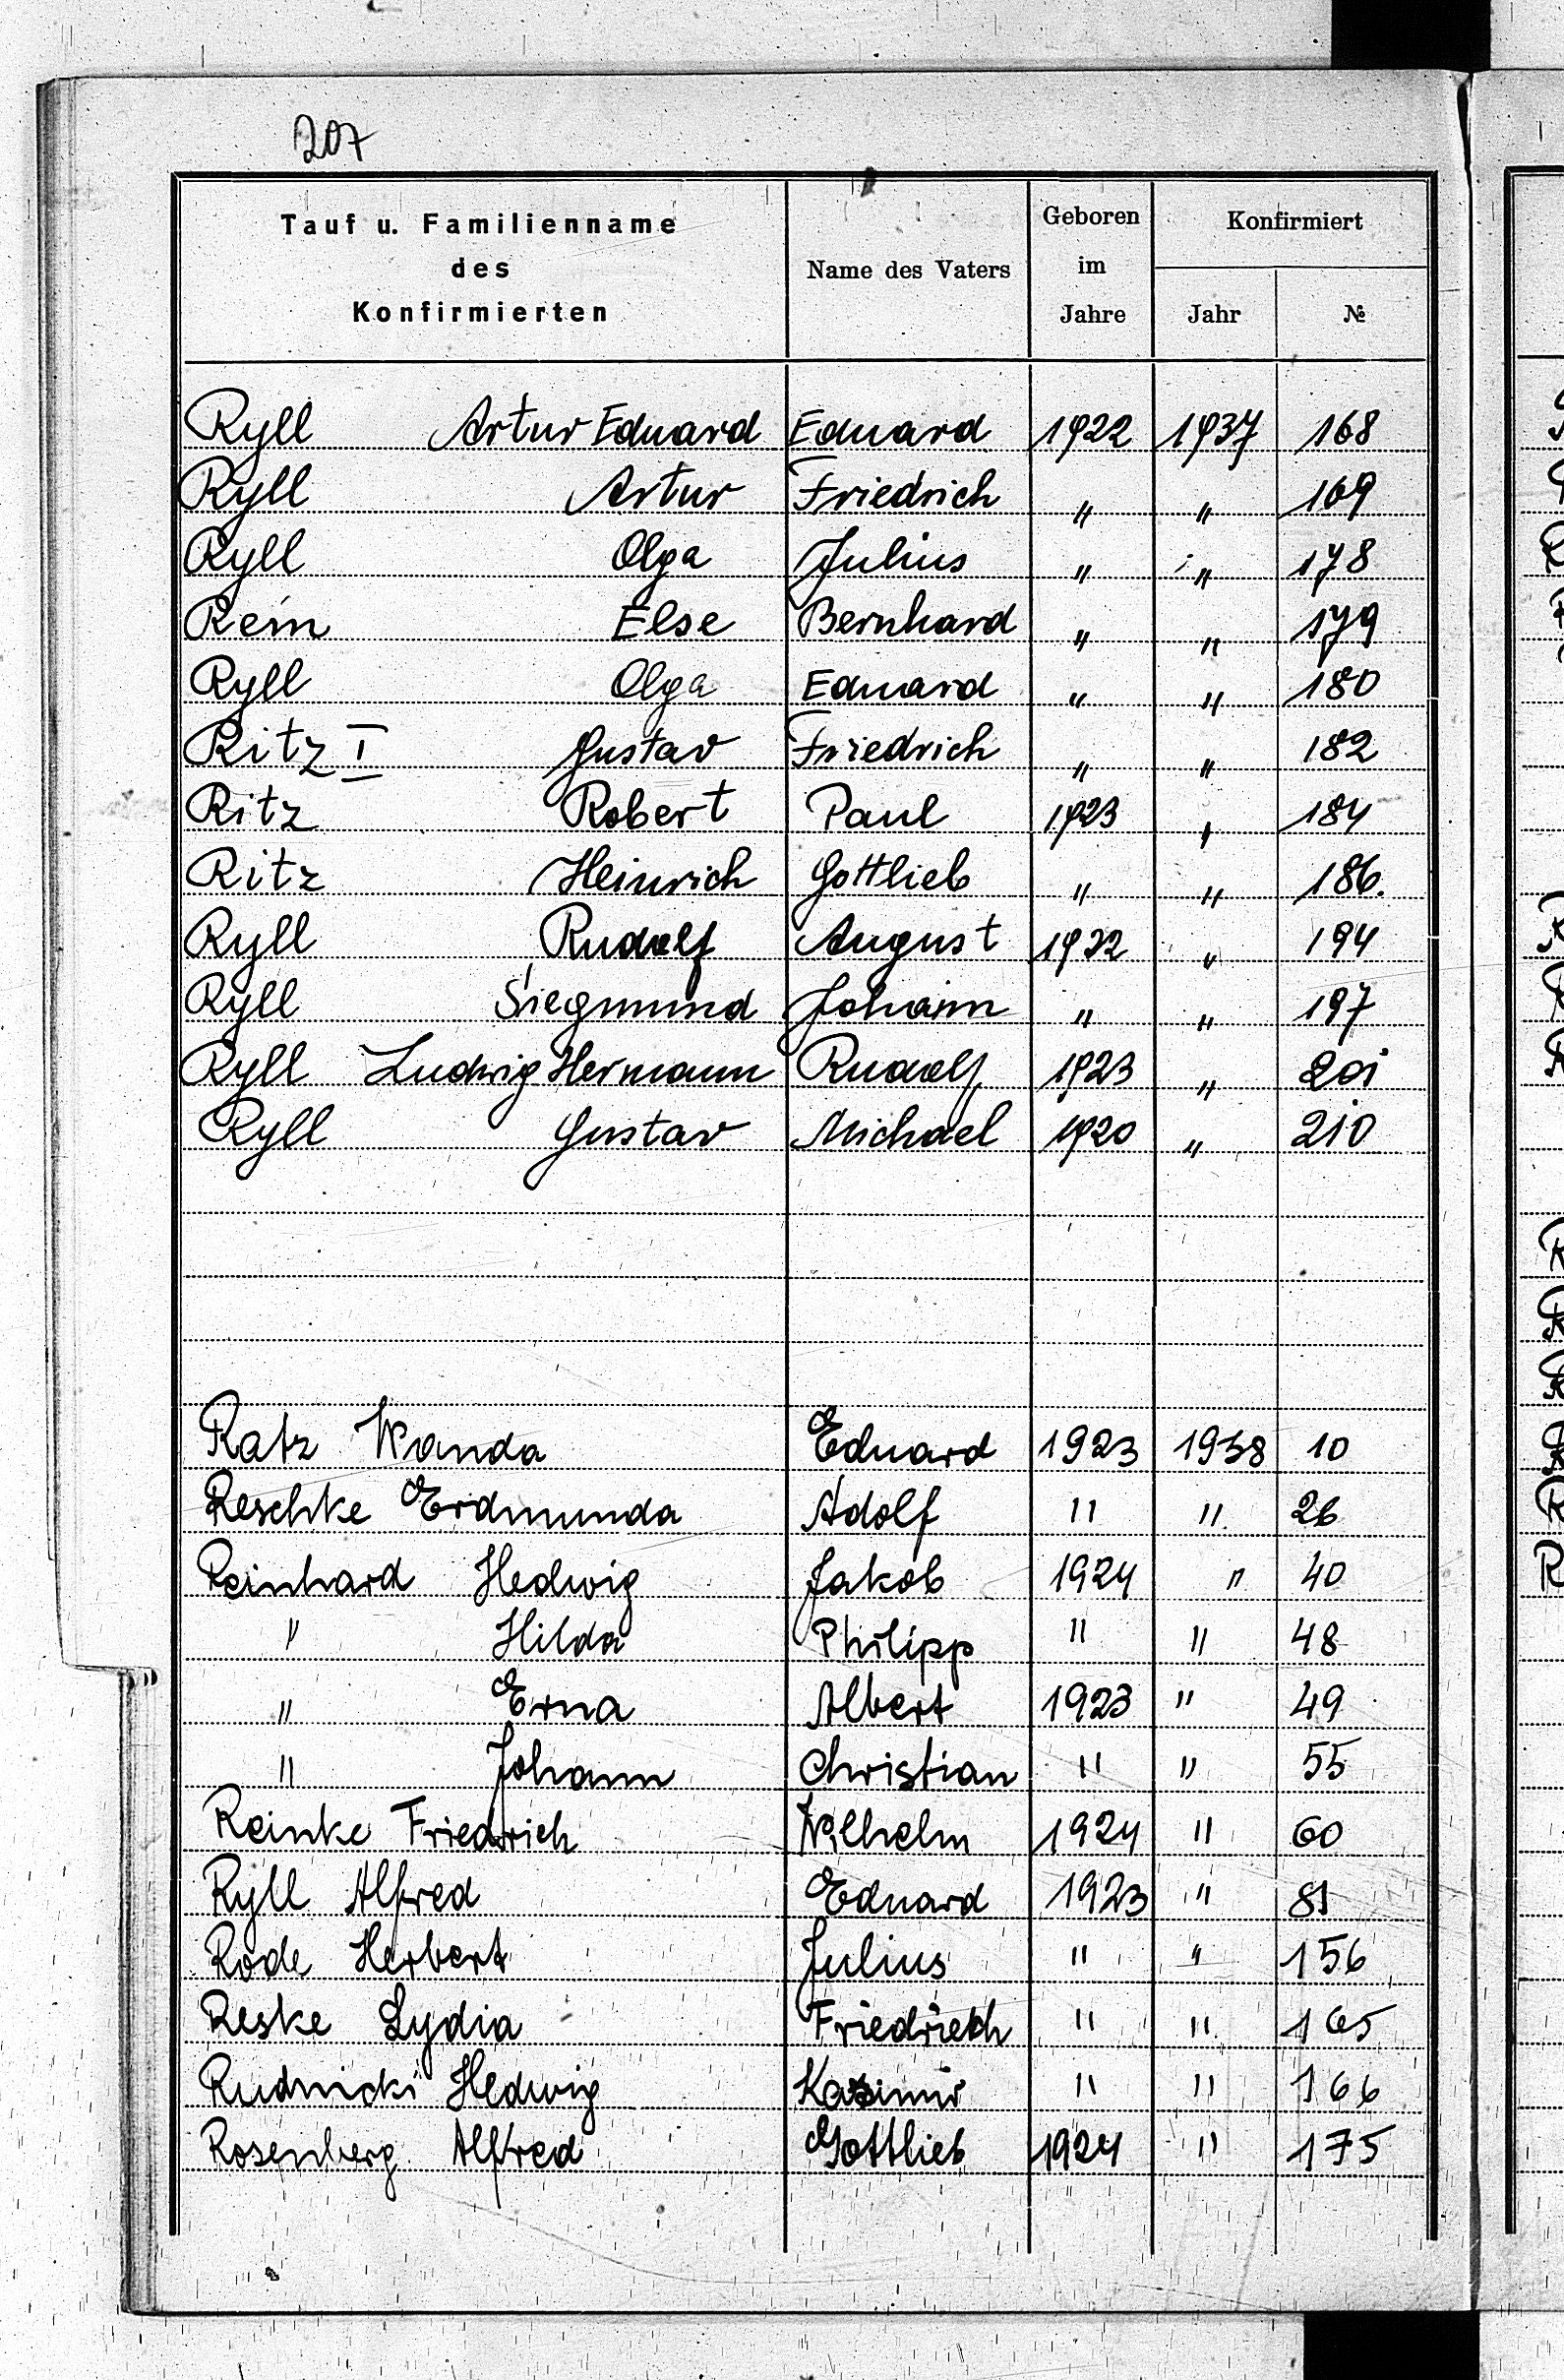 207
Tauf u. Familienname des Konfirmierten | Name des Vaters | Geboren im Jahre | Konfirmiert Jahr | №
Ryll Artur Eduard Eduard 1922 1937 168
Ryll Artur Friedrich " " 169
Ryll Olga Julius " " 178
Rein Else Bernhard " " 179
Ryll Olga Eduard " " 180
Ritz I Gustav Friedrich " " 182
Ritz Robert Paul 1923 " 184
Ritz Heinrich Gottlieb " " 186.
Ryll Rudolf August 1922 " 194
Ryll Siegmund Johann " " 197
Ryll Ludwig Hermann Rudolf 1923 " 201
Ryll Gustav Michael 1920 " 210
Ratz Wanda Eduard 1923 1938 10
Reschke Erdmunda Adolf " " 26
Reinhard Hedwig Jakob 1924 " 40
" Hilda Philipp " " 48
" Erna Albert 1923 " 49
" Johann Christian " " 55
Reinke Friedrich Wilhelm 1924 " 60
Ryll Alfred Eduard 1923 " 81
Rode Herbert Julius " " 156
Reske Lydia Friedrich " " 165
Rudnicki Hedwig Kasimir " " 166
Rosenberg Alfred Gottlieb 1924 " 175